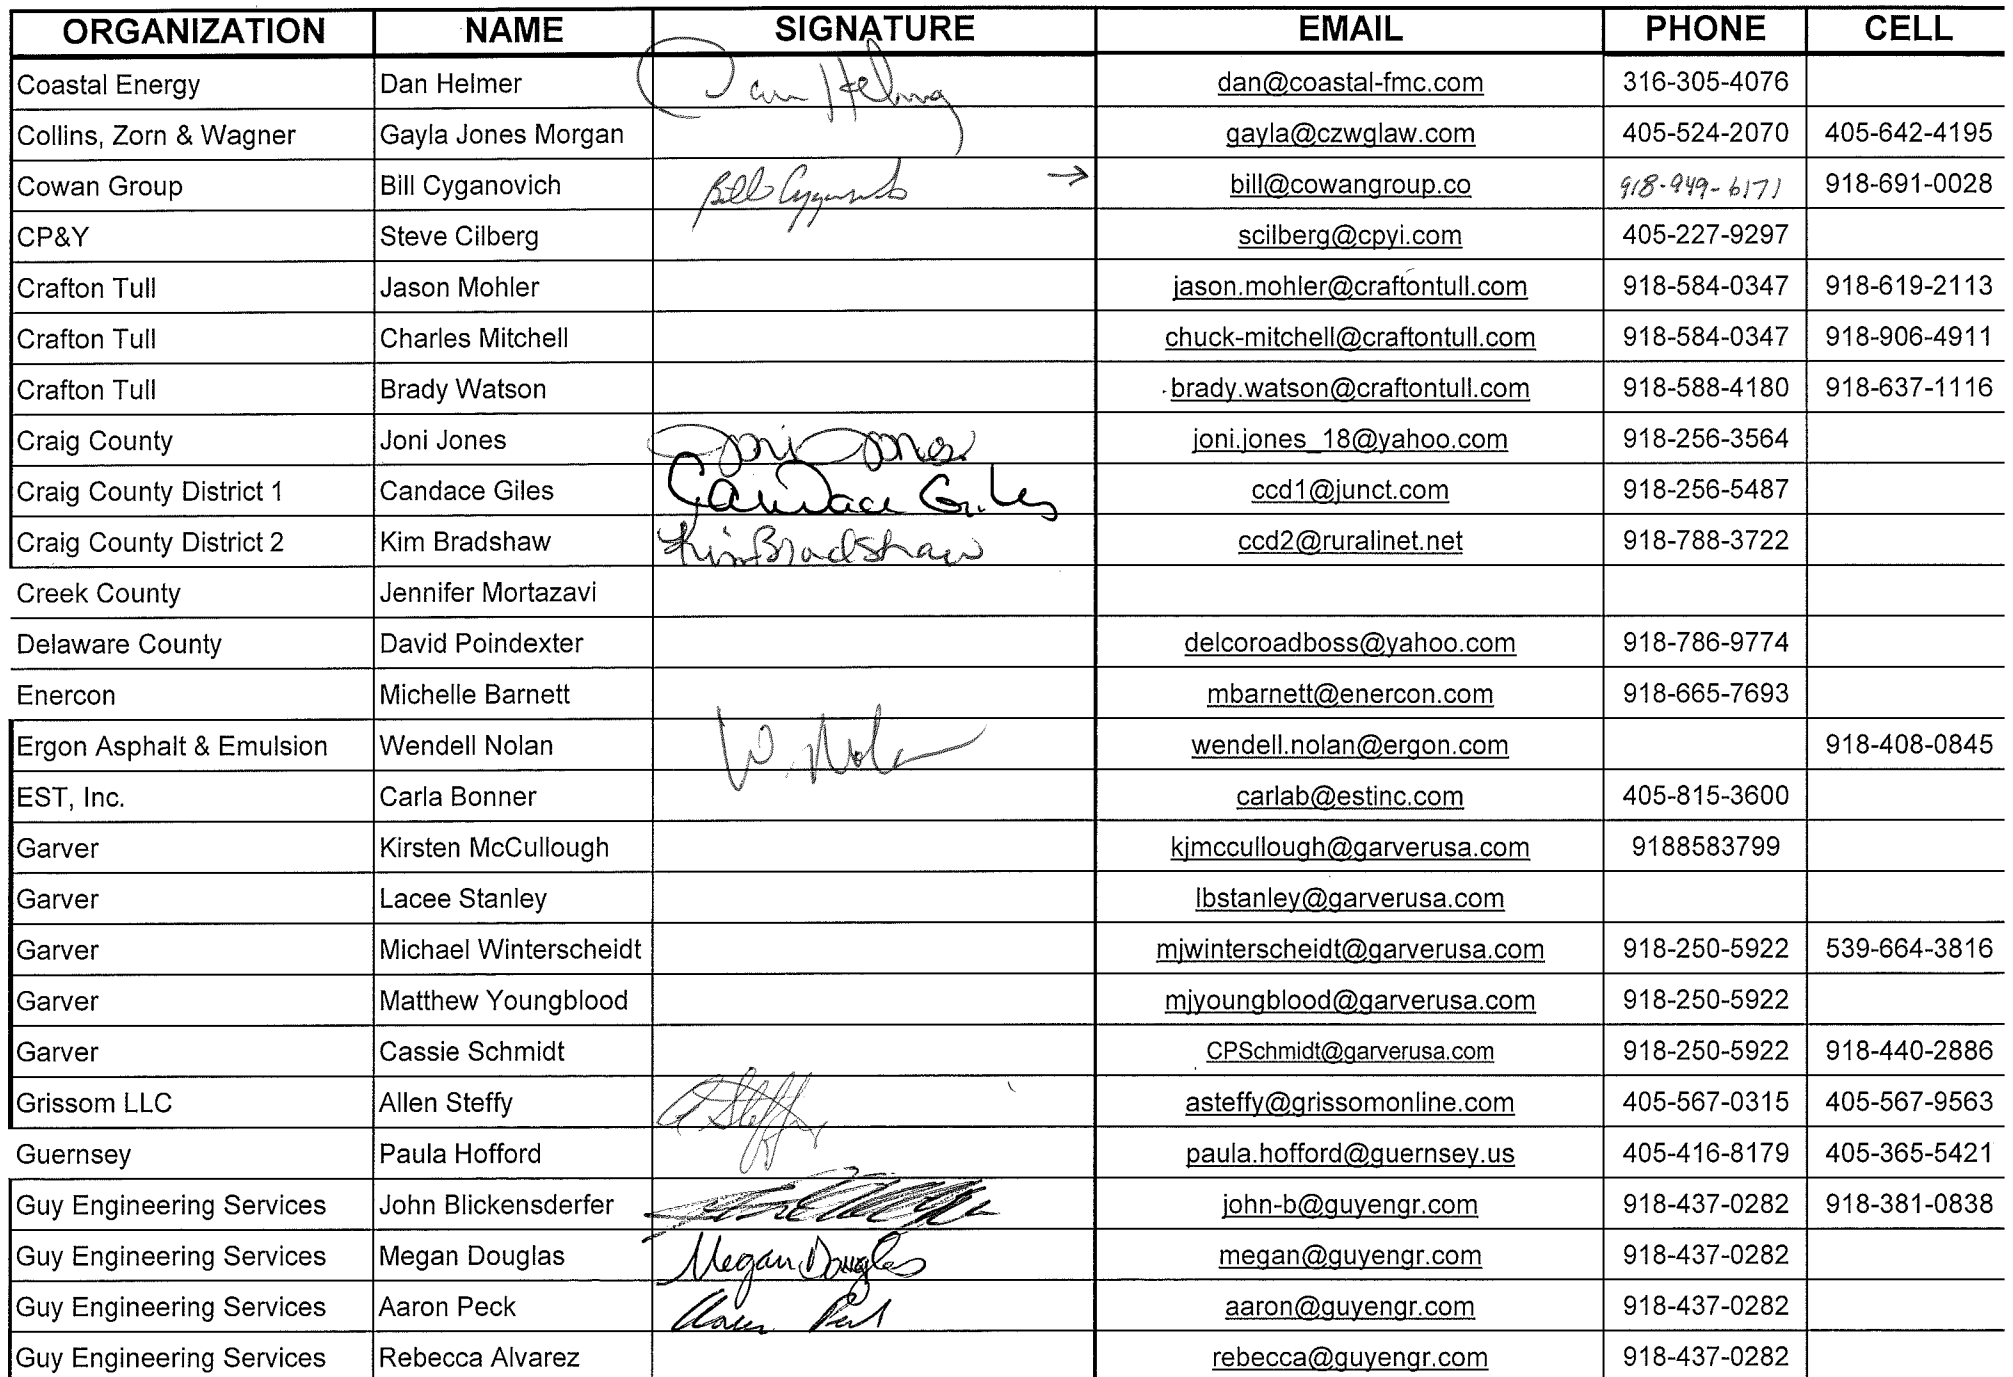 ORGANIZATION NAME SIGNATURE EMAIL PHONE CELL
Coastal Energy Dan Helmer Dan Helmer dan@coastal-fmc.com 316-305-4076
Collins, Zorn & Wagner Gayla Jones Morgan gayla@czwglaw.com 405-524-2070 405-642-4195
Cowan Group Bill Cyganovich Bill → bill@cowangroup.co 918-949-6171 918-691-0028
CP&Y Steve Cilberg scilberg@cpyi.com 405-227-9297
Crafton Tull Jason Mohler jason.mohler@craftontull.com 918-584-0347 918-619-2113
Crafton Tull Charles Mitchell chuck-mitchell@craftontull.com 918-584-0347 918-906-4911
Crafton Tull Brady Watson brady.watson@craftontull.com 918-588-4180 918-637-1116
Craig County Joni Jones Joni Jones joni.jones_18@yahoo.com 918-256-3564
Craig County District 1 Candace Giles Candace Giles ccd1@junct.com 918-256-5487
Craig County District 2 Kim Bradshaw Kim Bradshaw ccd2@ruralinet.net 918-788-3722
Creek County Jennifer Mortazavi
Delaware County David Poindexter delcoroadboss@yahoo.com 918-786-9774
Enercon Michelle Barnett mbarnett@enercon.com 918-665-7693
Ergon Asphalt & Emulsion Wendell Nolan W. Nolan wendell.nolan@ergon.com 918-408-0845
EST, Inc. Carla Bonner carlab@estinc.com 405-815-3600
Garver Kirsten McCullough kjmccullough@garverusa.com 9188583799
Garver Lacee Stanley lbstanley@garverusa.com
Garver Michael Winterscheidt mjwinterscheidt@garverusa.com 918-250-5922 539-664-3816
Garver Matthew Youngblood mjyoungblood@garverusa.com 918-250-5922
Garver Cassie Schmidt CPSchmidt@garverusa.com 918-250-5922 918-440-2886
Grissom LLC Allen Steffy A Steffy asteffy@grissomonline.com 405-567-0315 405-567-9563
Guernsey Paula Hofford paula.hofford@guernsey.us 405-416-8179 405-365-5421
Guy Engineering Services John Blickensderfer john-b@guyengr.com 918-437-0282 918-381-0838
Guy Engineering Services Megan Douglas Megan Douglas megan@guyengr.com 918-437-0282
Guy Engineering Services Aaron Peck Aaron Peck aaron@guyengr.com 918-437-0282
Guy Engineering Services Rebecca Alvarez rebecca@guyengr.com 918-437-0282